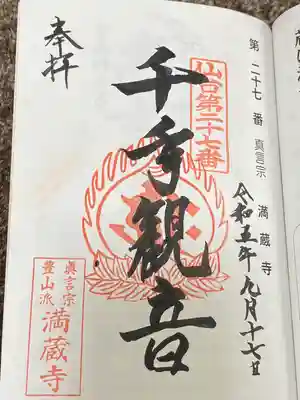 第二十七番 真言宗 満蔵寺
令和五年九月十七日
仙台第二十七番
千手観音
奉拝
真言宗
豊山派
満蔵寺